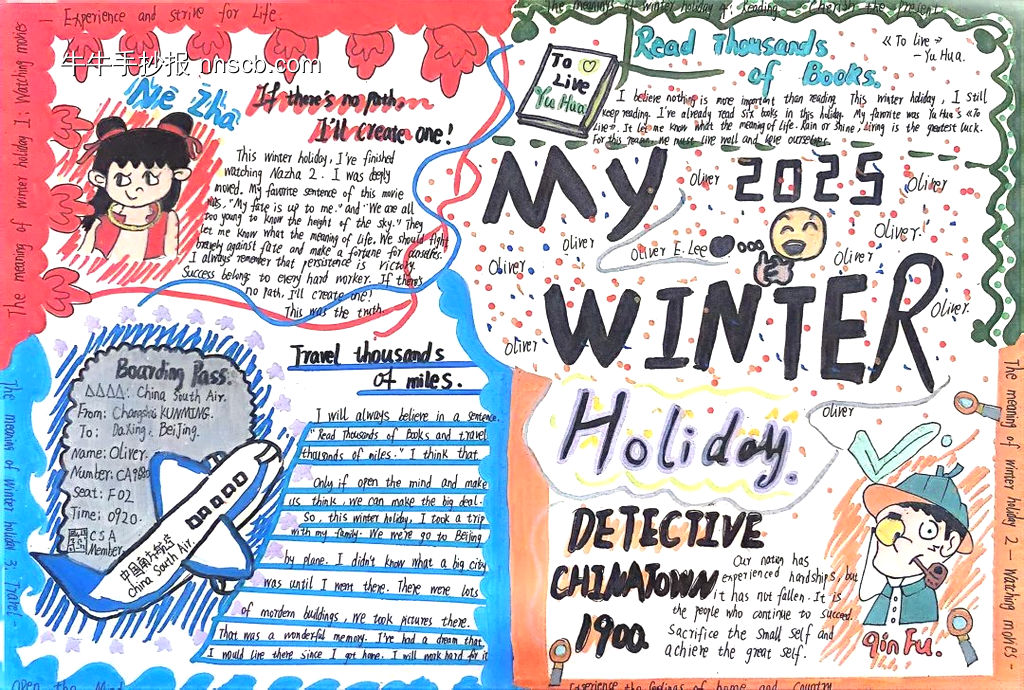 - Experience and strive for Life.
牛牛手抄报 nnscb.com
The meaning of winter holiday 1: Watching movies
Ne Zha
If there's no path,
I'll create one!
This winter holiday, I've finished
watching Nazha 2. I was deeply
moved. My favorite sentence of this movie
was, "My fate is up to me." and "We are all
too young to know the height of the sky." They
let me know what the meaning of life. We should fight
bravely against fate and make a fortune for ourselves.
I always remember that persistence is victory.
Success belong to every hard worker. If there's
no path, I'll create one!
This was the truth.
The meanings of winter holiday 4: Reading - Cherish the Present
To
Live
Yu Hua
Read Thousands
of Books.
《To Live》
-Yu Hua.
I believe nothing is more important than reading. This winter holiday, I still
keep reading. I've already read six books in this holiday. My favorite was Yu Hua's 《To
Live》. It let me know what the meaning of life. Rain or shine, living is the greatest luck.
For this reason, we must live well and love ourselves.
MY 2025
WINTER
Holiday.
Oliver
Oliver
Oliver
Oliver E. Lee
Oliver.
Oliver
Oliver
Oliver.
Oliver
Oliver
Boarding Pass.
△△△△: China South Air.
From: Changshui KUNMING.
To: Daxing, BeiJing.
Name: Oliver.
Number: CA9880
Seat: F02
Time: 0920.
CSA
Member
中国南方航空
China South Air.
The meaning of winter holiday 3: Travel -
Open the Mind
Travel thousands
of miles.
I will always believe in a sentence.
"Read Thousands of Books and travel
thousands of miles." I think that
Only if open the mind and make
us think, we can make the big deal.
So, this winter holiday, I took a trip
with my family. We we're go to BeiJing
by plane. I didn't know what a big city
was until I went there. There were lots
of mordern buildings, we took pictures there.
That was a wonderful memory. I've had a dream that
I would live there since I got home. I will work hard for it
DETECTIVE
CHINATOWN
1900.
Our nation has
experienced hardships, but
it has not fallen. It is
the people who continue to succeed.
Sacrifice the small self and
achieve the great self.
Qin Fu.
The meaning of winter holiday 2 - Watching movies -
Experience the feelings of home and country